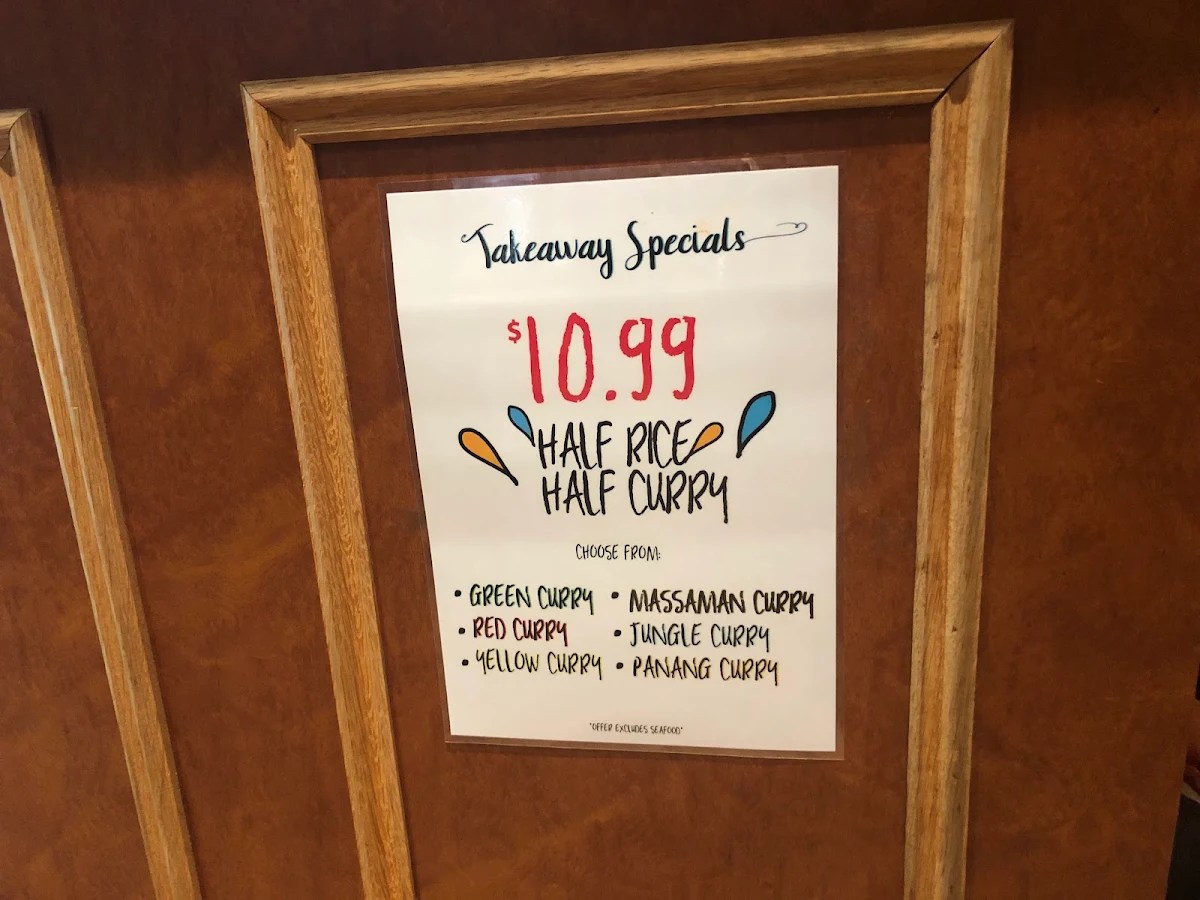 Takeaway Specials
$10.99
HALF RICE
HALF CURRY
CHOOSE FROM:
• GREEN CURRY
• RED CURRY
• YELLOW CURRY
• MASSAMAN CURRY
• JUNGLE CURRY
• PANANG CURRY
*OFFER EXCLUDES SEAFOOD*